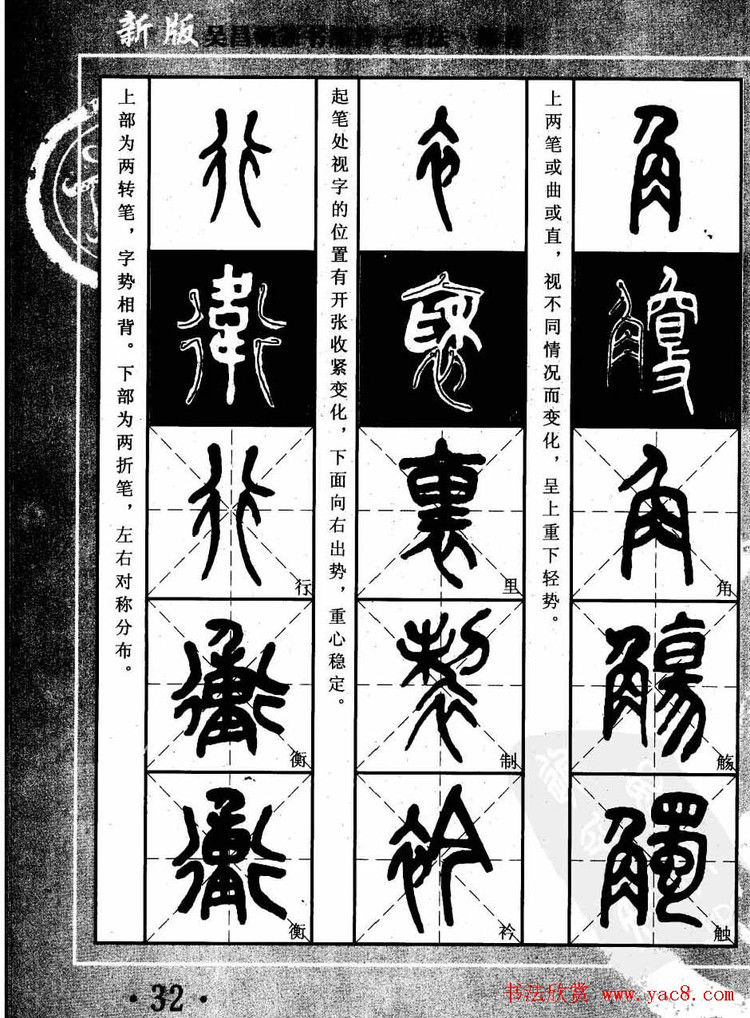 新版
上两笔或曲或直，视不同情况而变化，呈上重下轻势。
角
觞
触
起笔处视字的位置有开张收紧变化，下面向右出势，重心稳定。
里
制
衿
上部为两转笔，字势相背。下部为两折笔，左右对称分布。
行
衡
衡
·32·
书法欣赏 www.yac8.com